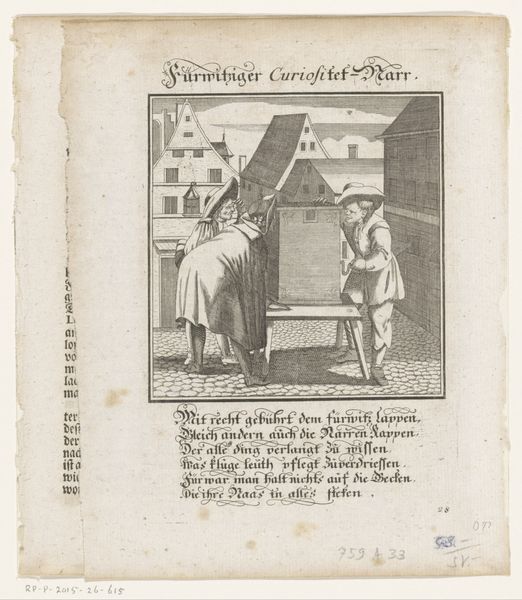 Fürwitziger Curiositet-Narr.
Mit recht gebührt dem fürwitz Lappen,
Gleich andern auch die Narren Kappen
Der alle ding verlangt zu wissen
Was kluge leuth pflegt zuverdriessen.
Fürwar man halt nichts auf die Gecken.
Die ihre Naas in alles steken.
28
759 A 33
RP-P-2015-26-615